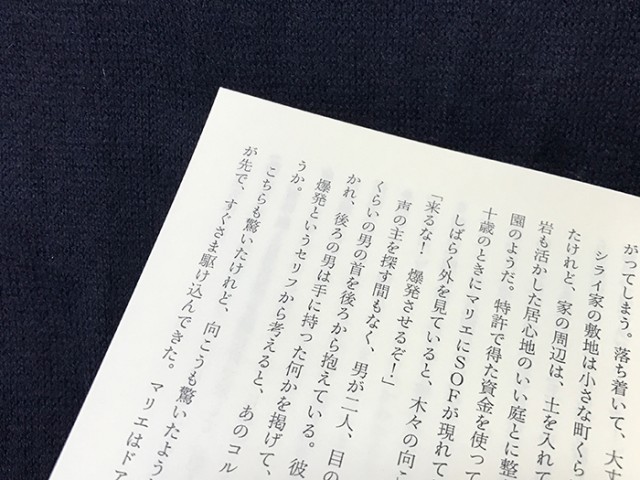 がってしまう。落ち着いて、大す
シライ家の敷地は小さな町くら
たけれど、家の周辺は、土を入れて
岩も活かした居心地のいい庭とに整
園のようだ。特許で得た資金を使って
十歳のときにマリエにSOFが現れて
しばらく外を見ていると、木々の向こ
「来るな！　爆発させるぞ！」
声の主を探す間もなく、男が二人、目の
くらいの男の首を後ろから抱えている。彼
かれ、後ろの男は手に持った何かを掲げて、
爆発というセリフから考えると、あのコル
うか。
こちらも驚いたけれど、向こうも驚いたよう
が先で、すぐさま駆け込んできた。マリエはドア